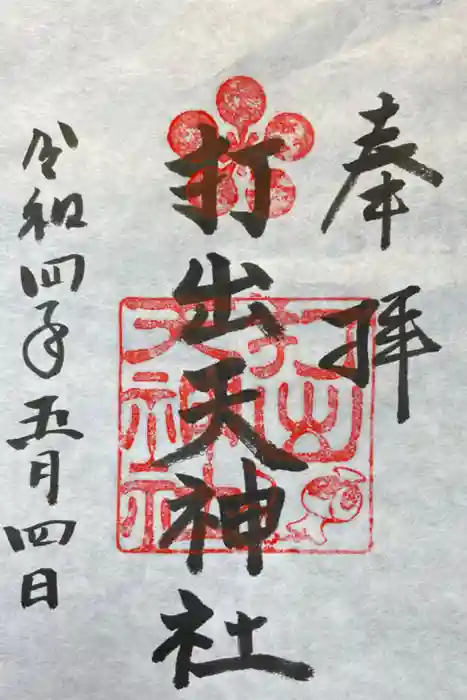 奉拝
打出天神社
打出
天神
社印
令和四年五月四日